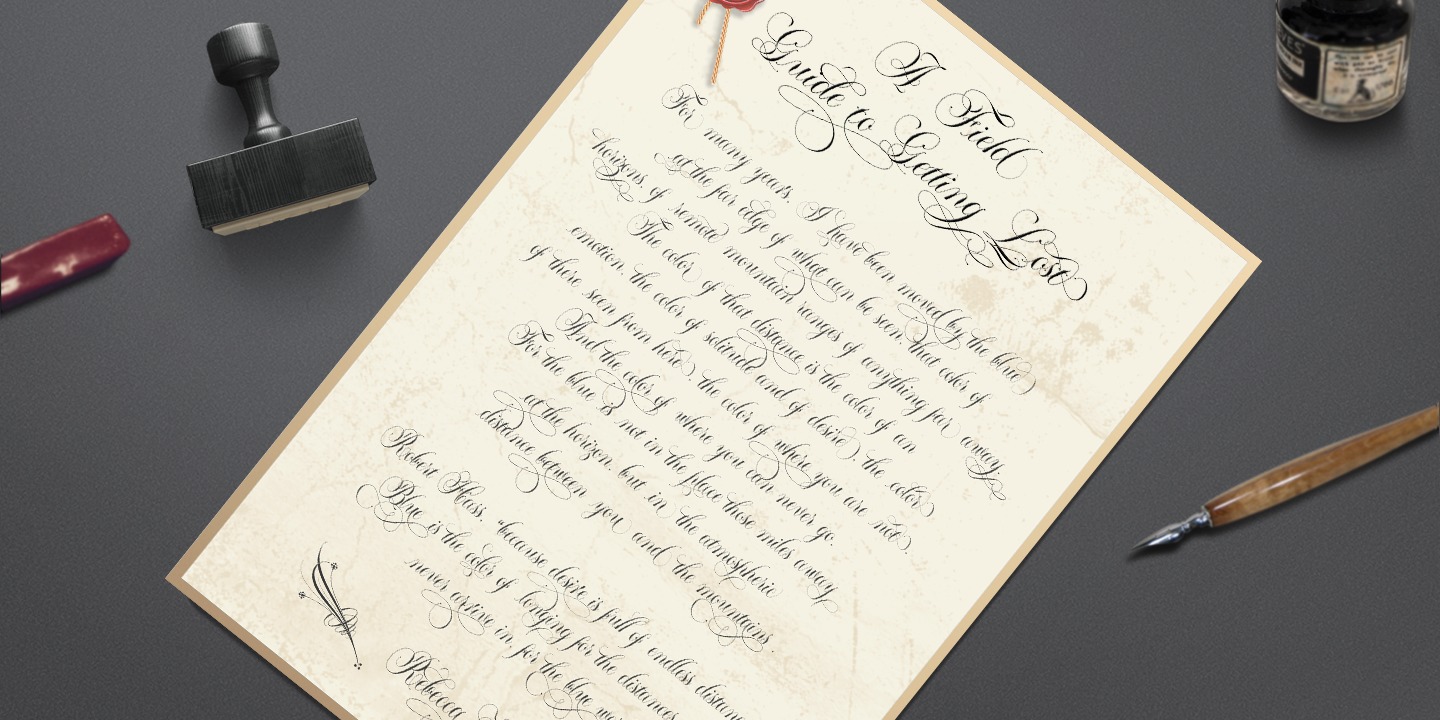 A Field
Guide to Getting Lost
For many years, I have been moved by the blue
at the far edge of what can be seen, that color of
horizons, of remote mountain ranges of anything far away.
The color of that distance is the color of an
emotion, the color of solitude and of desire, the color
of there seen from here, the color of where you are not,
And the color of where you can never go.
For the blue is not in the place those miles away
at the horizon, but in the atmospheric
distance between you and the mountains.
Robert Hass, "because desire is full of endless
Blue is the color of longing for the distances
never arrive in, for the blue
Rebecca